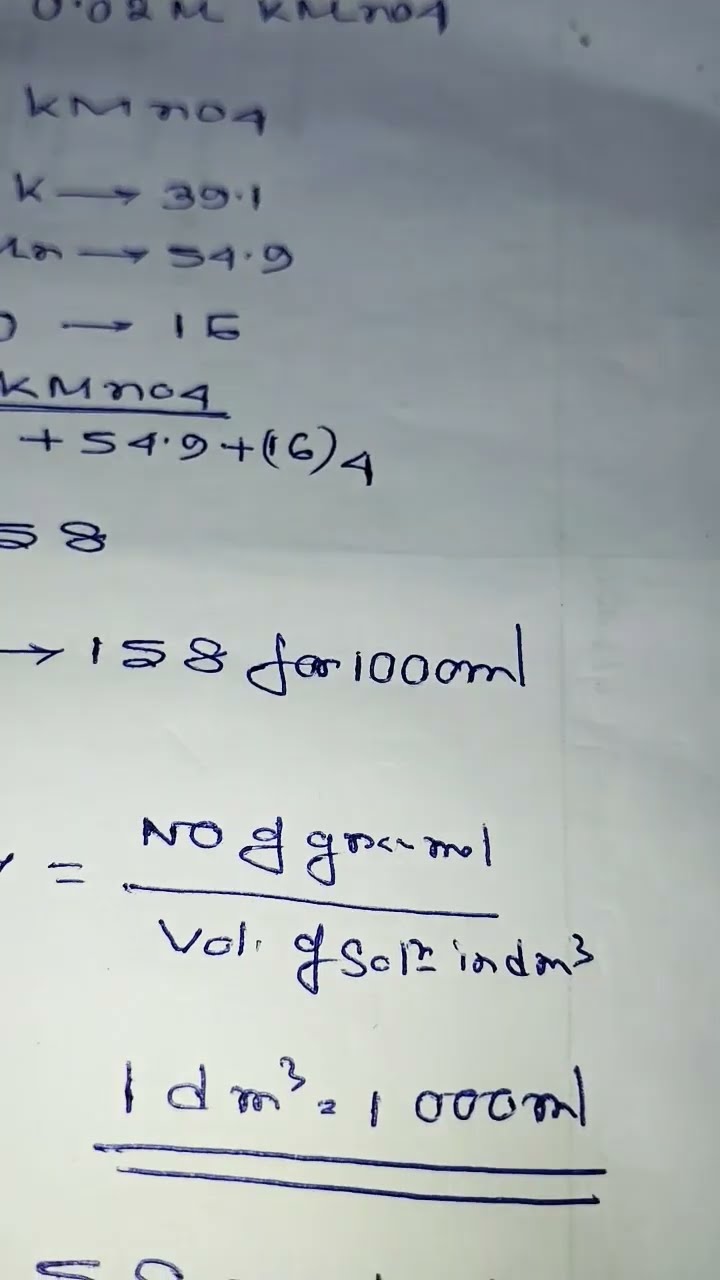 0.02M KMnO4
KMnO4
K → 39.1
Mn → 54.9
O → 16
KMnO4
+ 54.9 + (16)4
58
→ 158 for 1000ml
= No of gm-mol
Vol. of Soln in dm³
1 dm³ = 1000ml